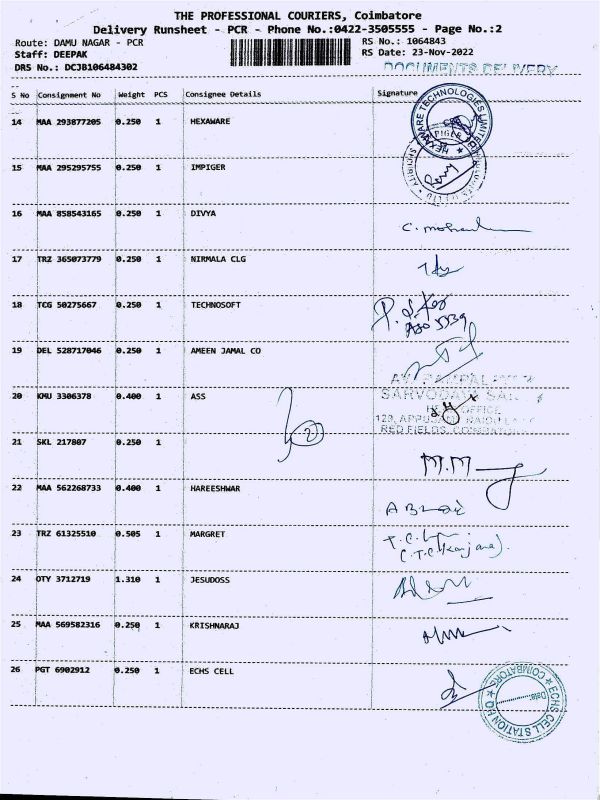 THE PROFESSIONAL COURIERS, Coimbatore
Delivery Runsheet - PCR - Phone No.:0422-3505555 - Page No.:2
Route: DAMU NAGAR - PCR RS No.: 1064843
Staff: DEEPAK RS Date: 23-Nov-2022
DRS No.: DCJB106484302 DOCUMENTS DELIVERY
S No Consignment No Weight PCS Consignee Details Signature
14 MAA 293877205 0.250 1 HEXAWARE
15 MAA 295295755 0.250 1 IMPIGER
16 MAA 858543165 0.250 1 DIVYA
17 TRZ 365073779 0.250 1 NIRMALA CLG
18 TCG 50275667 0.250 1 TECHNOSOFT
19 DEL 528717046 0.250 1 AMEEN JAMAL CO
20 KMU 3306378 0.400 1 ASS
SARVODAYA
OFFICE
RED FIELDS, COIMBATORE
2
21 SKL 217807 0.250 1
M.M
22 MAA 562268733 0.400 1 HAREESHWAR
23 TRZ 61325510 0.505 1 MARGRET
24 OTY 3712719 1.310 1 JESUDOSS
25 MAA 569582316 0.250 1 KRISHNARAJ
26 PGT 6902912 0.250 1 ECHS CELL
ECHS CELL STATION HQ COIMBATORE
Date